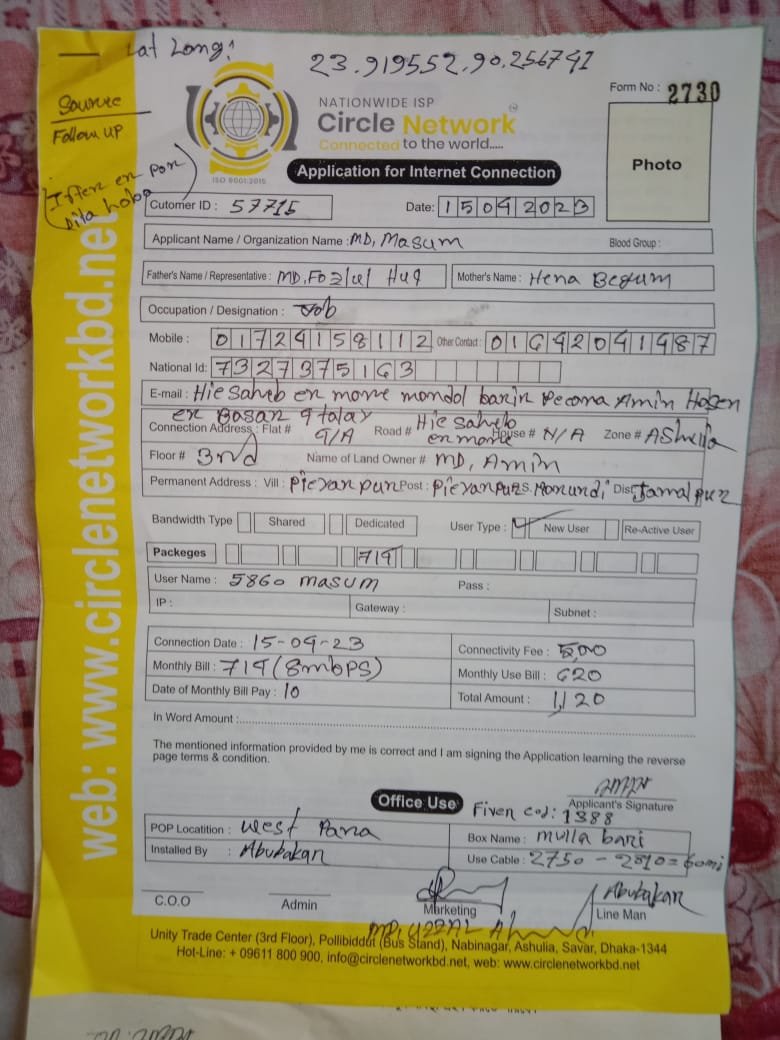 Lat Long:
23.919552.90.256741
Source
Follow UP
NATIONWIDE ISP
Circle Network
Connected to the world.....
ISO 9001:2015
Form No : 2730
Photo
Application for Internet Connection
Cutomer ID : 57715
Date: 15092023
Applicant Name / Organization Name : MD, Masum
Blood Group :
Father's Name / Representative : MD, Huq
Mother's Name : Hena Begum
Occupation / Designation : Job
Mobile : 01724158112 Other Contact : 01692041987
National Id: 7327375163
E-mail : Hie Saheb er more mondol barir Amin Hosen
er Basar 9 talay
Connection Address : Flat # 9/A Road # Hie Saheb er more House # N/A Zone # AShulia
Floor # 3nd Name of Land Owner # MD, Amin
Permanent Address : Vill : Pieran pur Post : Pieranpur Dist Jamalpur
Bandwidth Type Shared Dedicated User Type : New User Re-Active User
Packeges 719
User Name : 5860 masum Pass :
IP : Gateway : Subnet :
Connection Date : 15-09-23
Connectivity Fee : 500
Monthly Bill : 719 (8mbps)
Monthly Use Bill : 620
Date of Monthly Bill Pay : 10
Total Amount : 1,120
In Word Amount :
The mentioned information provided by me is correct and I am signing the Application learning the reverse
page terms & condition.
Applicant's Signature
Office Use
Fiver cod: 1388
POP Locatition : West Para
Box Name : mulla bari
Installed By : Abubakar
Use Cable : 2750 - 2810 = 60mi
C.O.O
Admin
Marketing
Abubakar
Line Man
Unity Trade Center (3rd Floor), Pollibiddut (Bus Stand), Nabinagar, Ashulia, Savar, Dhaka-1344
Hot-Line: + 09611 800 900, info@circlenetworkbd.net, web: www.circlenetworkbd.net
web: www.circlenetworkbd.net